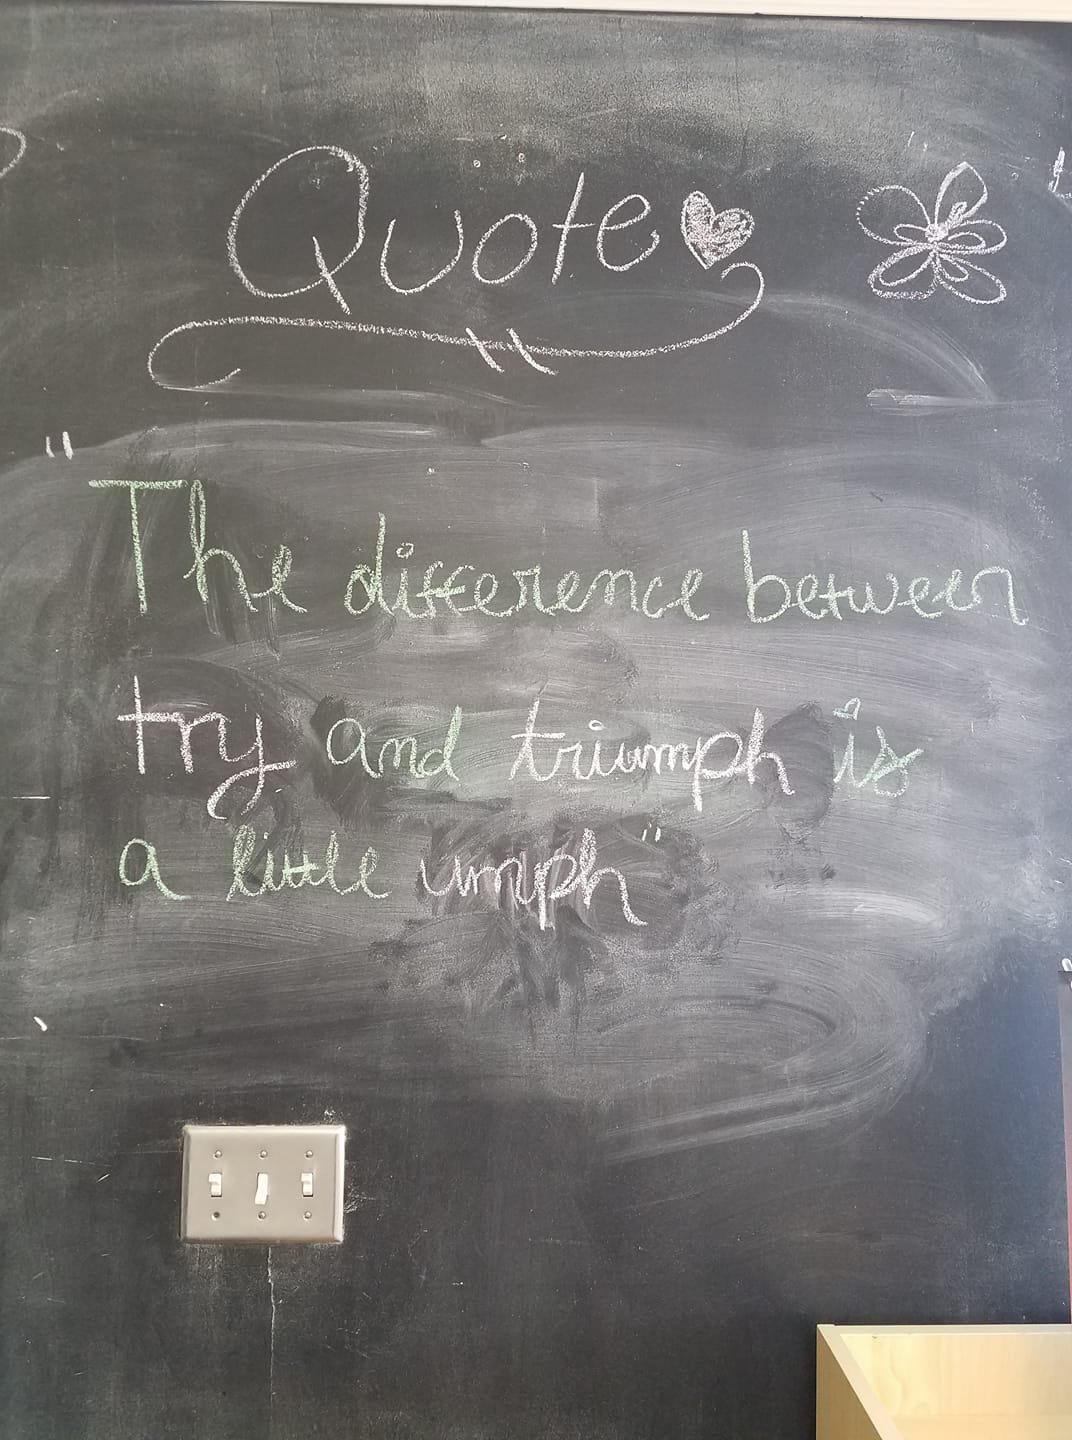 Quote
"The difference between
try and triumph is
a little umph"